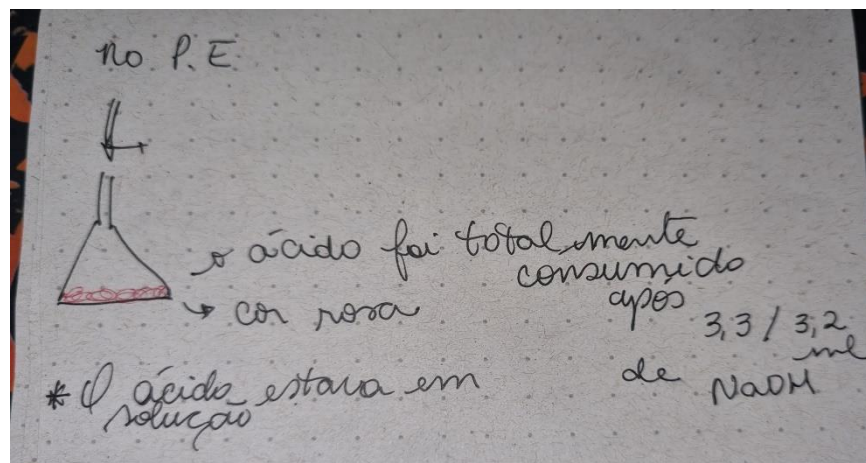 no P.E
o ácido foi totalmente
consumido
após
3,3 / 3,2
ml
de NaOH
→ cor rosa
* O ácido estava em
solução